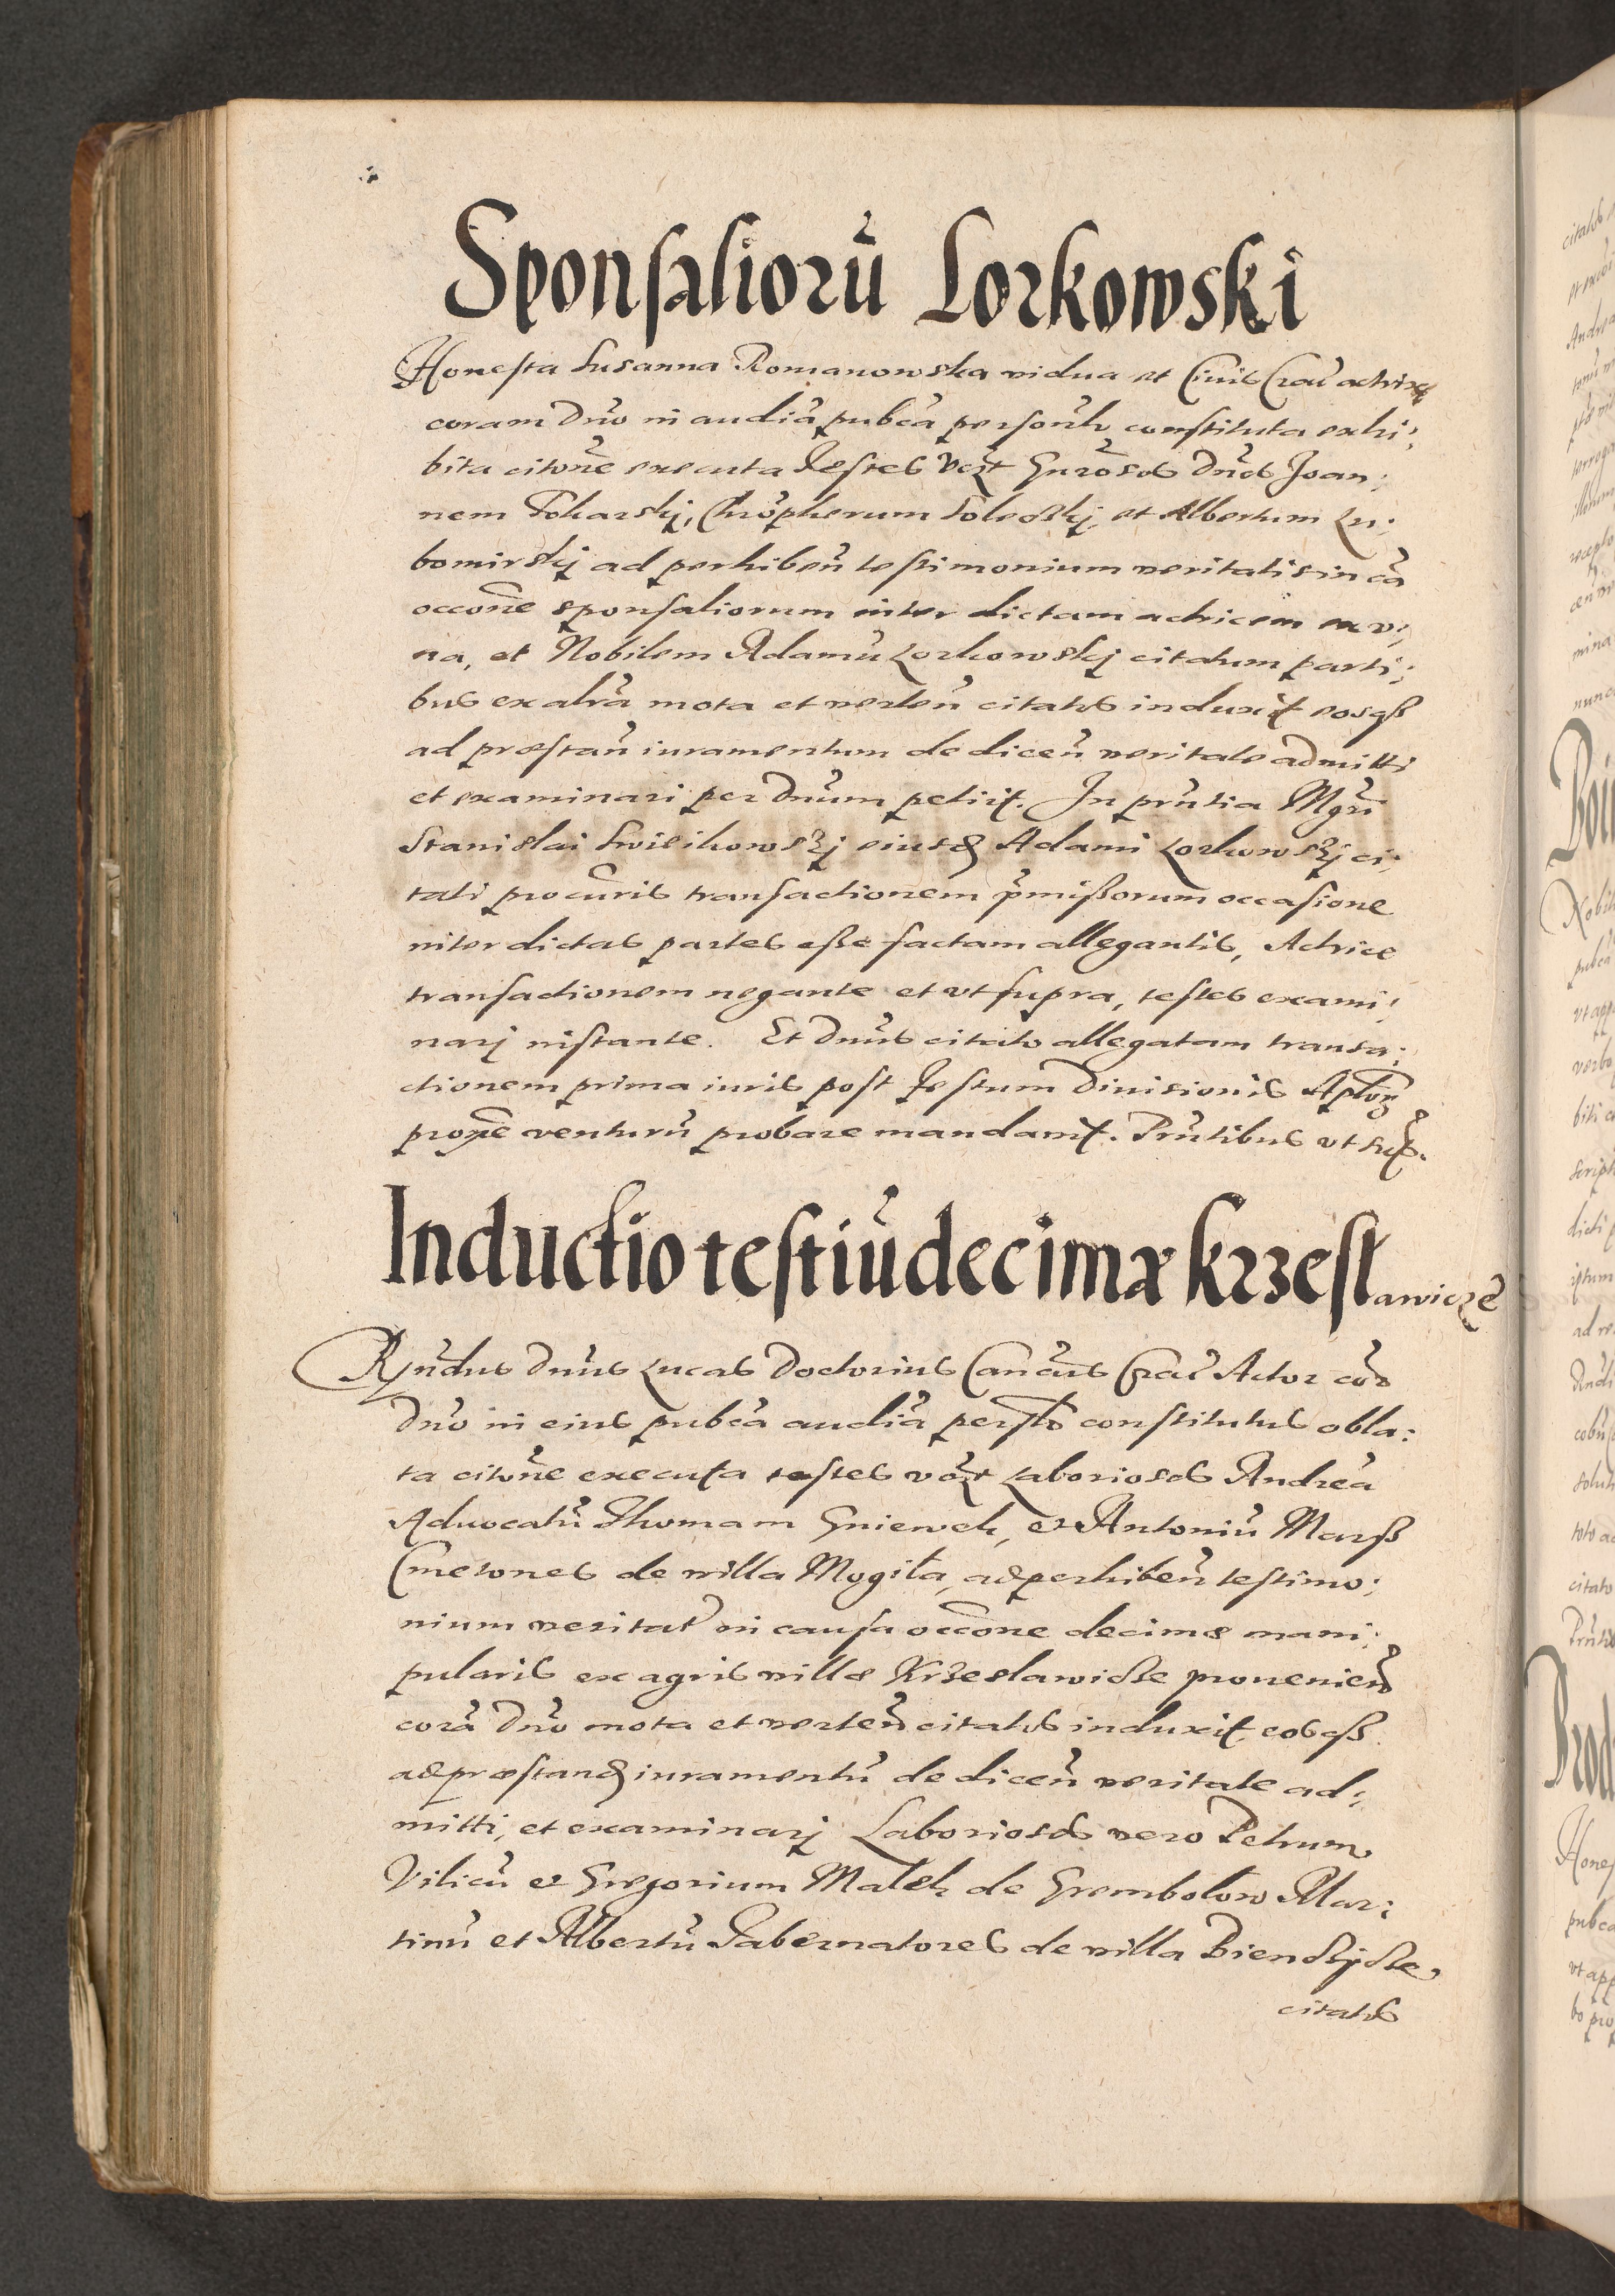 Sponsaliorũ Lorkowski
Honesta Susanna Romanowska vidua et Civis Crac̃ actrix
coram Dño in audiã pubcã persoñlr constituta exhi:
bita citoñe executa Testes vcz̃t Gñrosos Dños Joan:
nem Tokarskj, Chrõpherum et Albertum Lu:
bomirskj ad perhibeñ testimonium veritatis in cã
occoñe sponsaliorum inter dictam actricem ex v:
na, et Nobilem Adamũ Lorkowskj citatum parti:
bus ex altrã mota et verteñ citatos induxit eosqß
ad præstañ iuramentum de diceñ veritate admitti
et examinari per Dñum petiit. In prñtia Mgrĩ
Stanislai eiusd Adami Lorkowskj ci:
tati procuris transactionem p̃mißorum occasione
inter dictas partes eße factam allegantis, Actrice
transactionem negante et vt supra, testes exami:
narj instante. Et Dñus citato allegatam transa:
ctionem prima iuris post Festum Divisionis Aplor̃
proxẽ venturũ probare mandavit. Prñtibus vt sup̃.
Inductio testiũ decimæ Krzesławiczẽ
Rṽndus Dñus Lucas Doctorius Cancus Crac̃ Actor corã
Dño in eius pubcã audiã persłr constitutus obla:
ta citoñe executa testes vcz̃t Laboriosos Andreã
Advocatũ Thomam Gniewek, et Antoniũ Marß
Cmetones de villa Mogiła, ad perhibeñ testimo:
nium veritat̃ in causa occõne decimæ mani:
pularis ex agris villæ Krzeslawicze provenieñ
corã Dño mota et verteñ citatos induxit, eosqß
ad præstand iuramentũ de diceñ veritate ad:
mitti, et examinarj Laboriosos vero Petrum
Vilicũ et Gregorium Malek de Grembolow Mar:
tinũ et Albertũ Tabernatores de villa Bienczycze
citatos